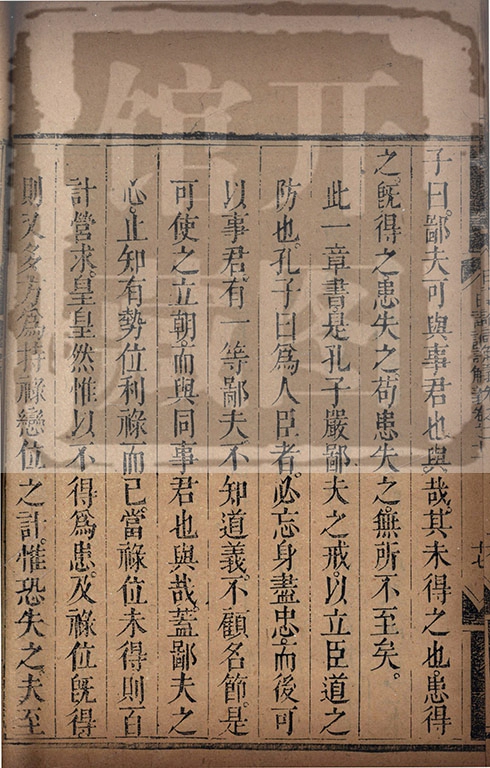 子曰鄙夫可與事君也與哉其未得之也患得
之旣得之患失之苟患失之無所不至矣
此一章書是孔子嚴鄙夫之戒以立臣道之
防也孔子曰爲人臣者必忘身盡忠而後可
以事君有一等鄙夫不知道義不顧名節是
可使之立朝而與同事君也與哉蓋鄙夫之
心止知有勢位利祿而已當祿位未得則百
計營求皇皇然惟以不得爲患及祿位旣得
則又多方爲持祿戀位之計惟恐失之夫至